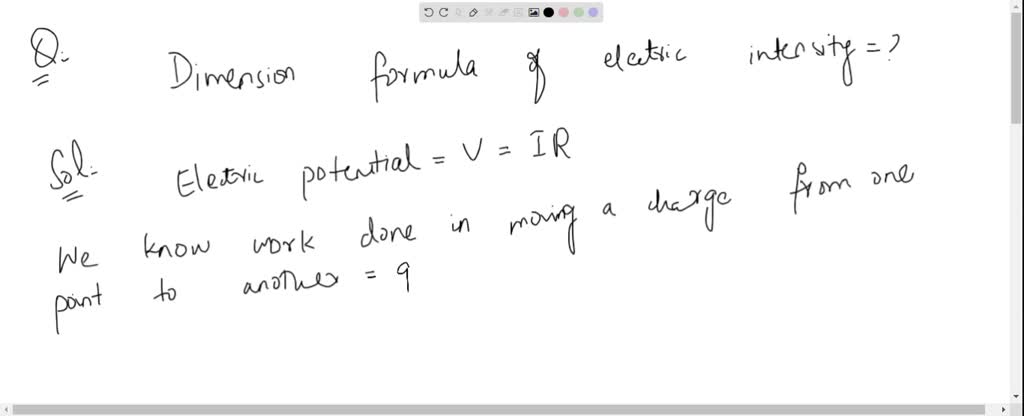 Q:- Dimension formula of electric intensity = ?
Sol:- Electric potential = V = IR
We know work done in moving a charge from one
point to another = q